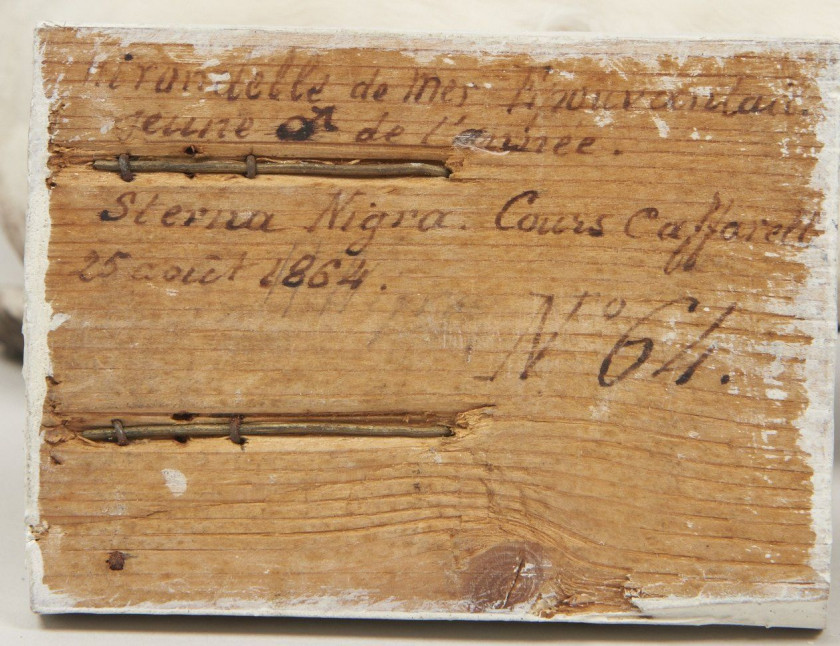 Hirondelle de Mer Epouvantail.
jeune ♂ de l'année.
Sterna Nigra. Cours Caffarelli
25 août 1864.
N° 64.